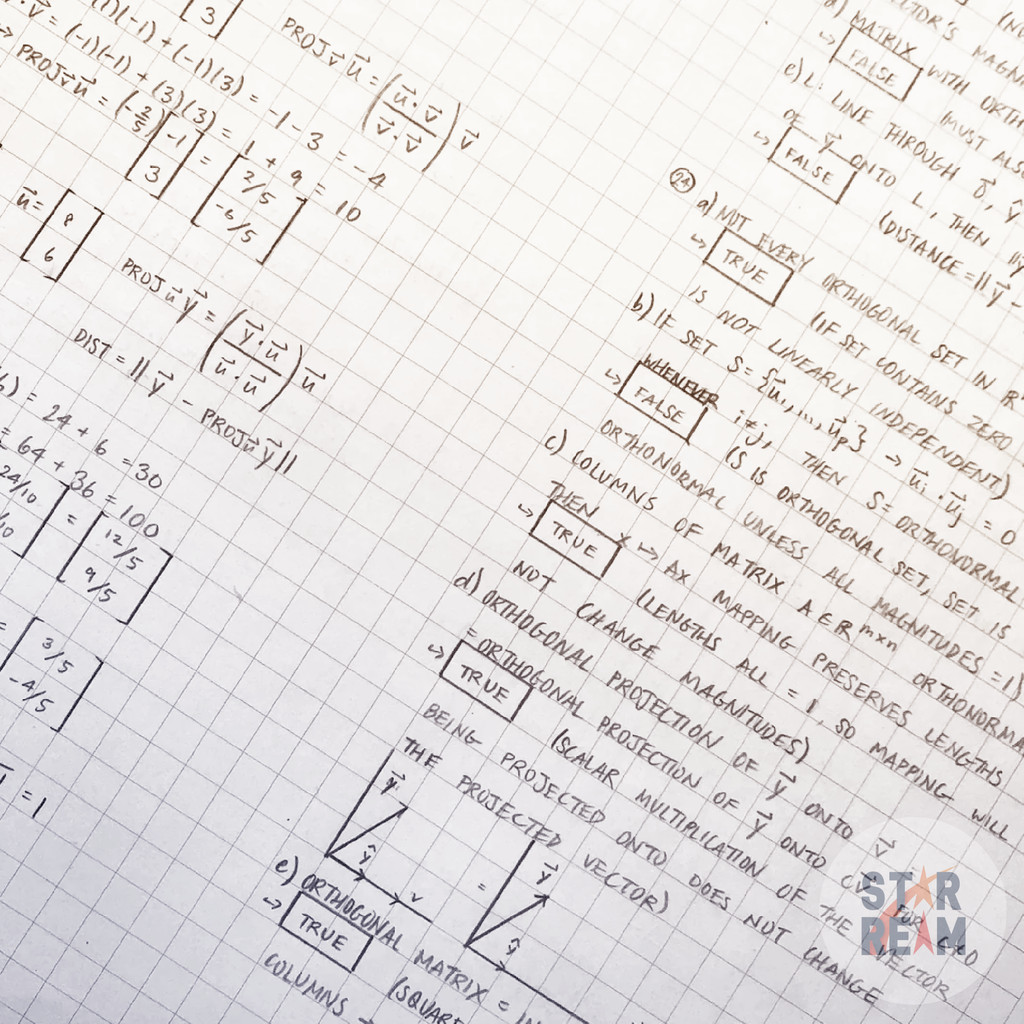 3
PROJ v⃗ u⃗ = (u⃗·v⃗ / v⃗·v⃗) v⃗
(1)(-1) + (-1)(3) = -1 - 3 = -4
·v⃗ = (-1)(-1) + (3)(3) = 1 + 9 = 10
↳ PROJ v⃗ u⃗ = (-2/5) [-1 3] = [2/5 -6/5]
u⃗ = [8 6]
PROJ u⃗ y⃗ = (y⃗·u⃗ / u⃗·u⃗) u⃗
DIST = ||y⃗ - PROJ u⃗ y⃗||
6) = 24 + 6 = 30
= 64 + 36 = 100
24/10
/10
= [12/5 9/5]
= [3/5 -4/5]
= 1
VECTOR'S MAGN
d) MATRIX WITH ORTH
↳ FALSE (MUST ALSO
e) L: LINE THROUGH 0⃗, ŷ
OF y⃗ ONTO L, THEN
↳ FALSE (DISTANCE = ||y⃗ -
24
a) NOT EVERY ORTHOGONAL SET IN R
↳ TRUE (IF SET CONTAINS ZERO
IS NOT LINEARLY INDEPENDENT)
b) IF SET S = {u⃗₁,..., u⃗p} → u⃗i · u⃗j = 0
WHENEVER i≠j, THEN S = ORTHONORMAL
↳ FALSE (S IS ORTHOGONAL SET, SET IS
ORTHONORMAL UNLESS ALL MAGNITUDES = 1)
c) COLUMNS OF MATRIX A ∈ R m×n ORTHONORMA
THEN x ↦ Ax MAPPING PRESERVES LENGTHS
↳ TRUE (LENGTHS ALL = 1, SO MAPPING WILL
NOT CHANGE MAGNITUDES)
d) ORTHOGONAL PROJECTION OF y⃗ ONTO v⃗
= ORTHOGONAL PROJECTION OF y⃗ ONTO cv⃗ FOR c≠0
↳ TRUE (SCALAR MULTIPLICATION OF THE VECTOR
BEING PROJECTED ONTO DOES NOT CHANGE
THE PROJECTED VECTOR)
y⃗
ŷ
v
=
y⃗
ŷ
e) ORTHOGONAL MATRIX =
↳ TRUE (SQUARE
COLUMNS →
STAR
REAM